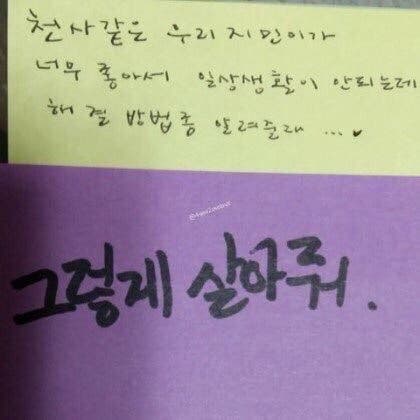 천사같은 우리 지민이가
너무 좋아서 일상생활이 안되는데
해결 방법좀 알려줄래 ... ♥
그렇게 살아줘.